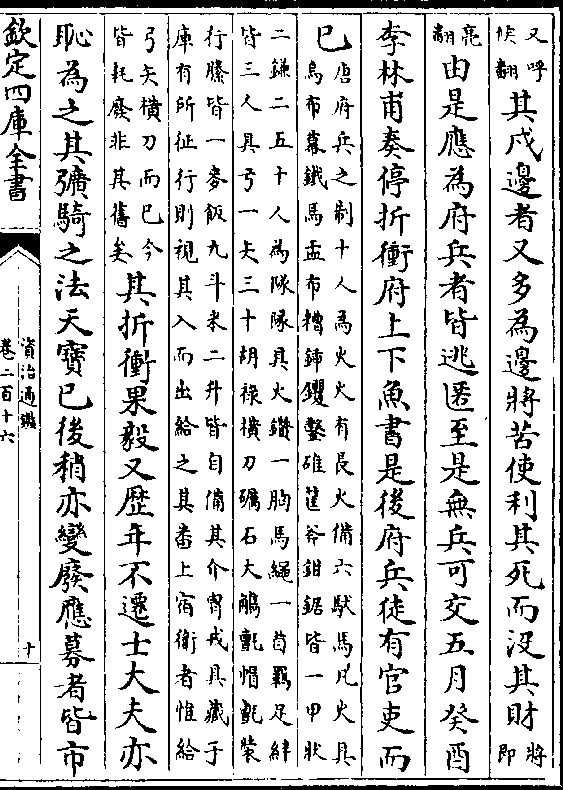 又呼候翻其戍邊者又多為邊將苦使利其死而沒其財將即
亮翻由是應為府兵者皆逃匿至是無兵可交五月癸酉
李林甫奏停折衝府上下魚書是後府兵徒有官吏而
已唐府兵之制十人為火火有長火備六䭾馬凡火具
烏布幕鐵馬盂布糟鍤钁鑿碓筐斧鉗鋸皆一甲狀
二鎌二五十人為隊隊具火鑽一胷馬繩一首羈足絆
皆三人具弓一矢三十胡祿橫刀礪石大觿氊帽氊裝
行縢皆一麥飯九斗米二升皆自備其介胄戎具藏于
庫有所征行則視其入而出給之其番上宿衛者惟給
弓矢橫刀而已今
皆耗廢非其舊矣其折衝果毅又歷年不遷士大夫亦
恥為之其彍騎之法天寶已後稍亦變廢應募者皆市
欽定四庫全書
資治通鑑
卷二百十六
十